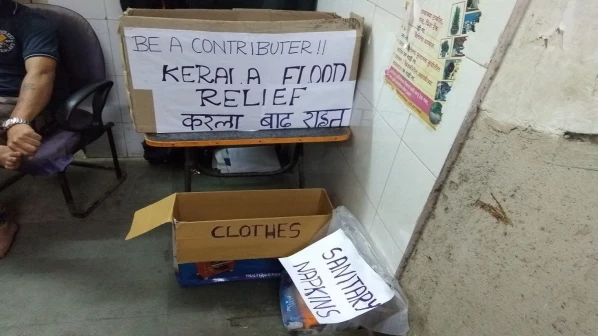 BE A CONTRIBUTER !!
KERALA FLOOD
RELIEF
करला बाढ राहत
CLOTHES
SANITARY
NAPKINS